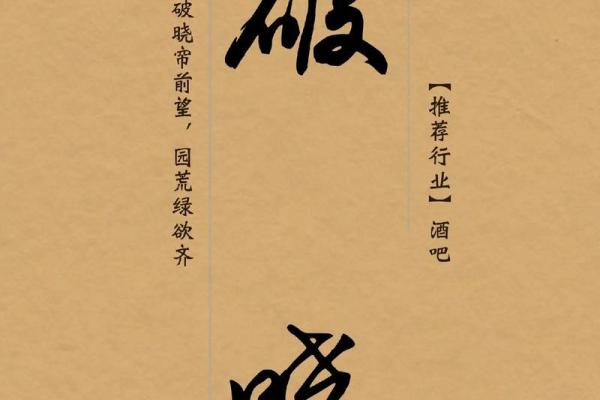 【推荐行业】酒吧
破
晓
破晓帘前望，园荒绿欲齐